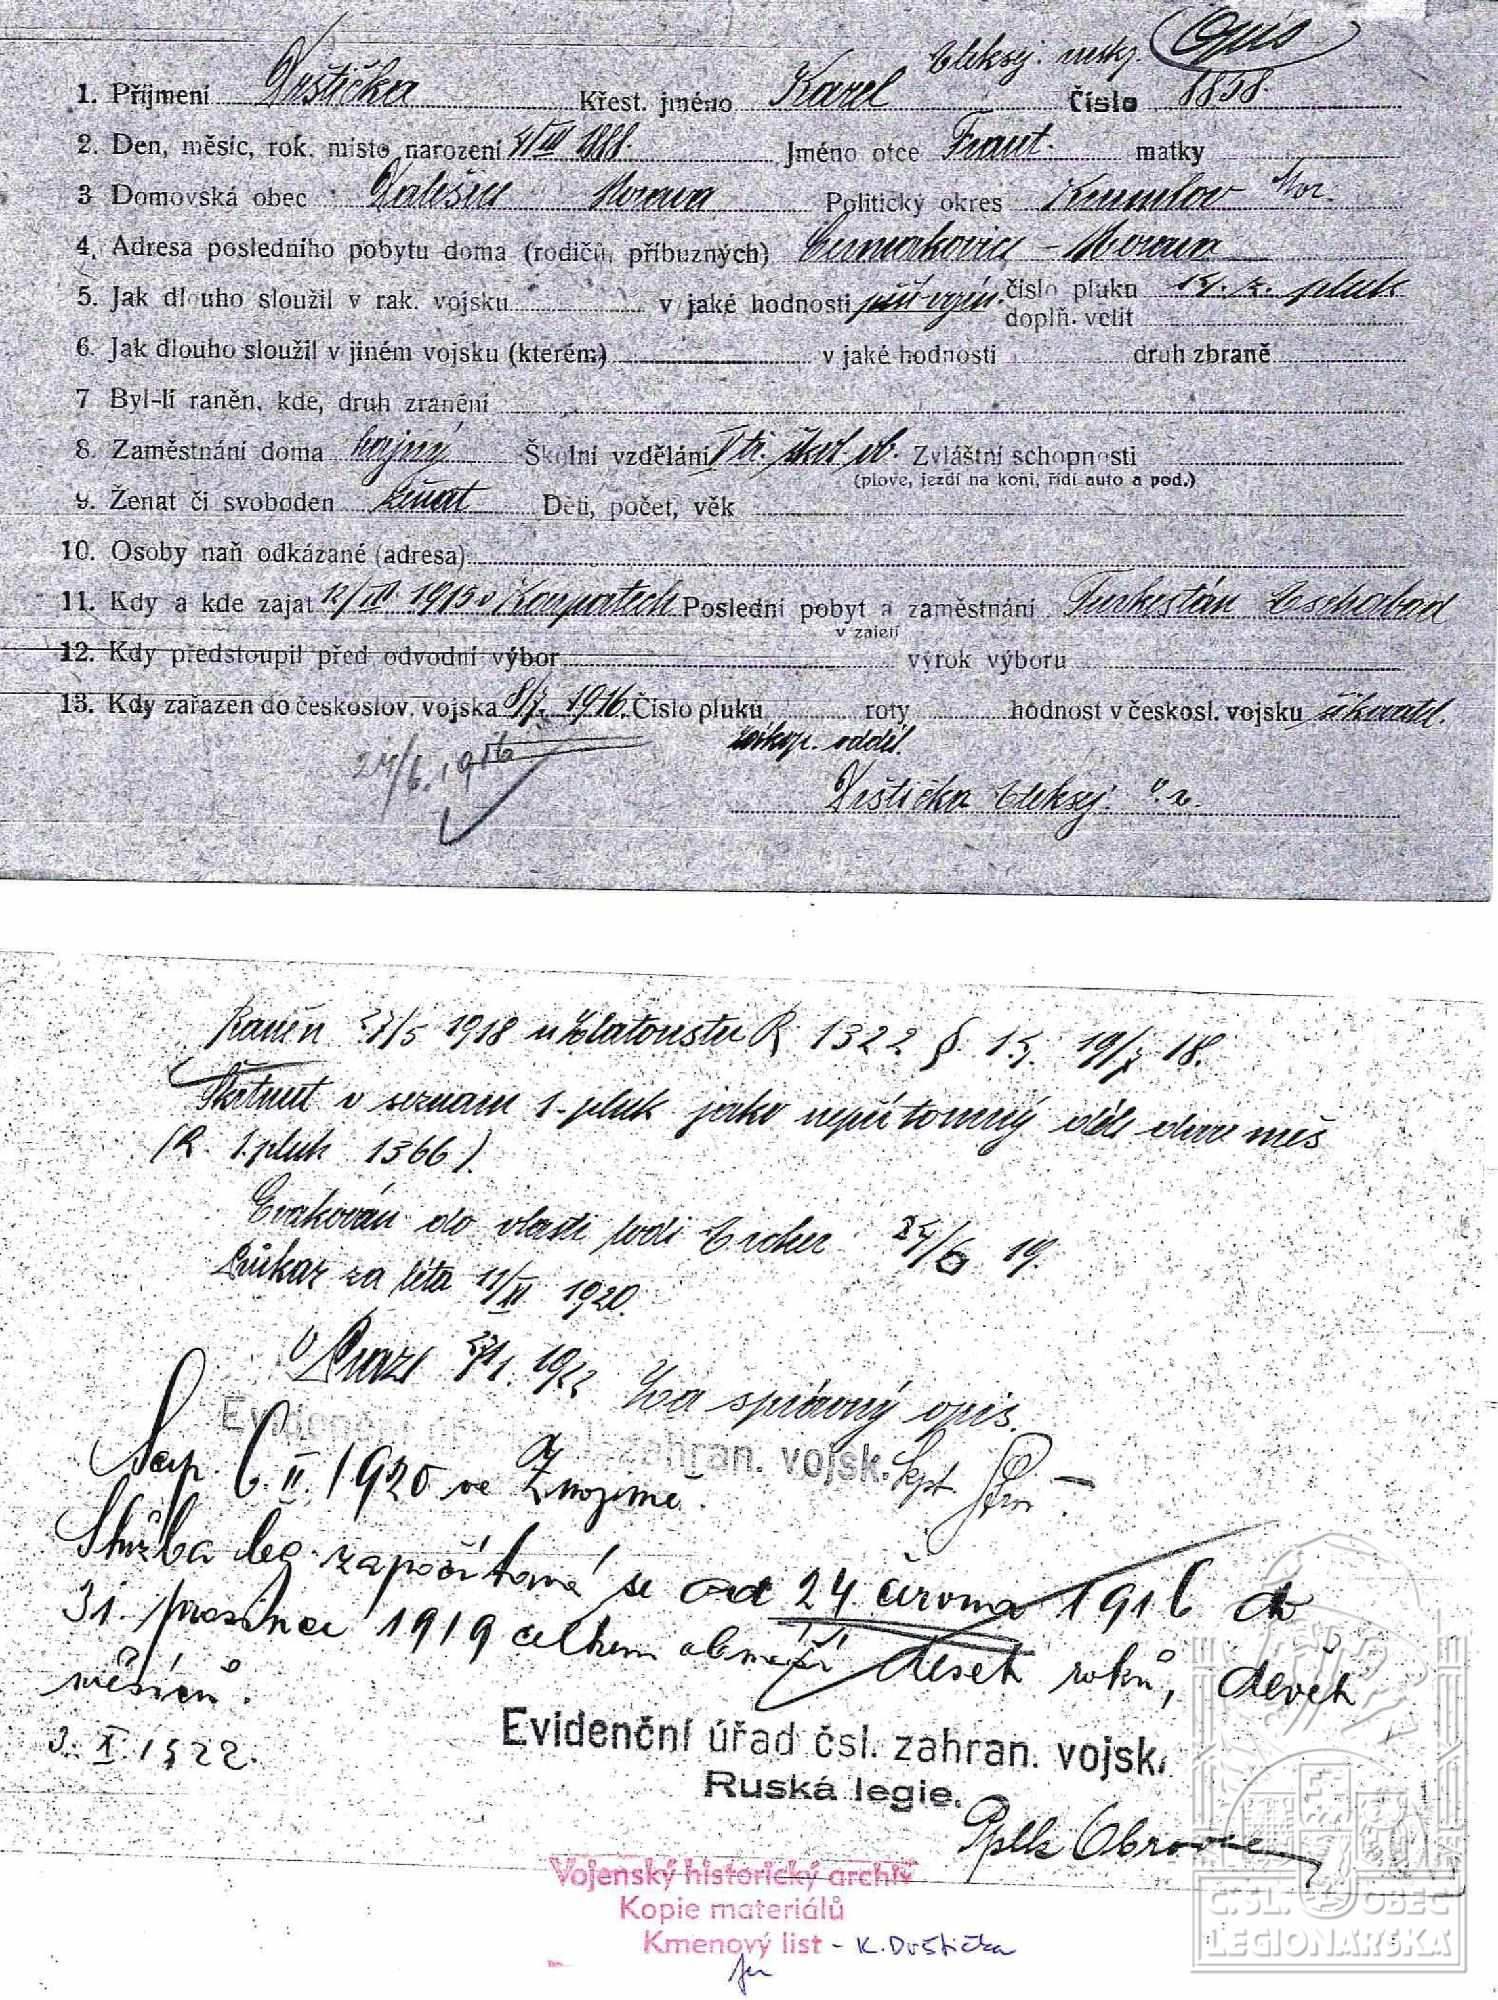 Aleksej. Opis
1. Příjmení Drštička Křest. jméno Karel Číslo 1858.
2. Den, měsíc, rok, místo narození 1888. Jméno otce Frant. matky
3 Domovská obec Dalešice Morava Politický okres Krumlov Mor.
4. Adresa posledního pobytu doma (rodičů, příbuzných) Morava
5. Jak dlouho sloužil v rak. vojsku v jaké hodnosti číslo pluku pluk
doplň. velit
6. Jak dlouho sloužil v jiném vojsku (kterém) v jaké hodnosti druh zbraně
7 Byl-li raněn, kde, druh zranění
8. Zaměstnání doma hajný Školní vzdělání Zvláštní schopnosti
(plove, jezdí na koni, řídí auto a pod.)
9. Ženat či svoboden ženat Děti, počet, věk
10. Osoby naň odkázané (adresa)
11. Kdy a kde zajat 12/III. 1915 v Karpatech Poslední pobyt a zaměstnání Turkestán Aschabad
v zajetí
12. Kdy předstoupil před odvodní výbor výrok výboru
13. Kdy zařazen do českoslov. vojska 1916. Číslo pluku roty hodnost v českosl. vojsku
zákop. oddíl.
24/6. 1916
Drštička Aleksej v. r.
Raněn 27/5 1918 u Zlatoustu R 1322 §. 19/X 18.
Škrtnut v seznam 1. pluk jako nepřítomný déle dvou měs
(R. 1. pluk 1366)
Evakován do vlasti lodi Archer 24/6 19.
Průkaz za léta 11/XI 1920.
V Praze 1922 Za správný opis.
Evidenční úřad čsl. zahran. vojsk.
6. II. 1920 ve Znojmě.
Služba leg. započítává se od 24. června 1916 do
31. prosince 1919 celkem deset roků, devět
měsíců.
3. X. 1922.
Evidenční úřad čsl. zahran. vojsk.
Ruská legie.
Pplk
Vojenský historický archiv
Kopie materiálů
Kmenový list - K. Drštička
Č.SL. OBEC
LEGIONÁŘSKÁ